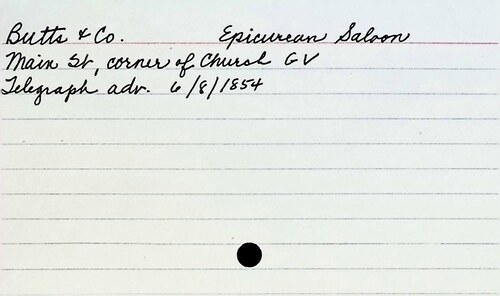 Butts & Co. Epicurean Saloon
Main St, corner of Church GV
Telegraph adv. 6/8/1854